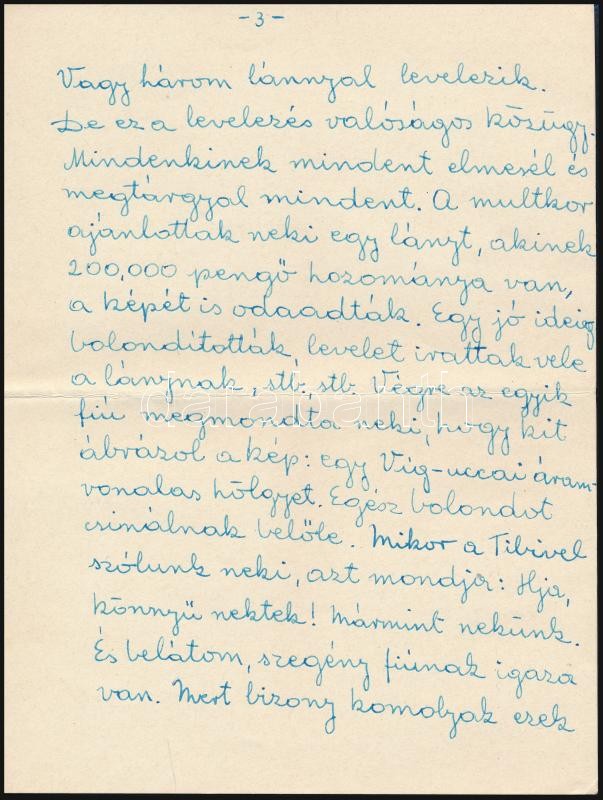 -3-
Vagy három lánnyal levelezik.
De ez a levelezés valóságos közügy.
Mindenkinek mindent elmesél és
megtárgyal mindent. A multkor
ajánlottak neki egy lányt, akinek
200,000 pengő hozománya van,
a képét is odaadták. Egy jó ideig
bolondították, levelet irattak vele
a lánynak, stb., stb. Végre az egyik
fiú megmondta neki, hogy kit
ábrázol a kép: egy Víg-uccai áram-
vonalas hölgyet. Egész bolondot
csinálnak belőle. Mikor a Tibivel
szólunk neki, azt mondja: Hja,
könnyű nektek! Mármint nekünk.
És belátom, szegény fiúnak igaza
van. Mert bizony komolyak ezek
darabanth